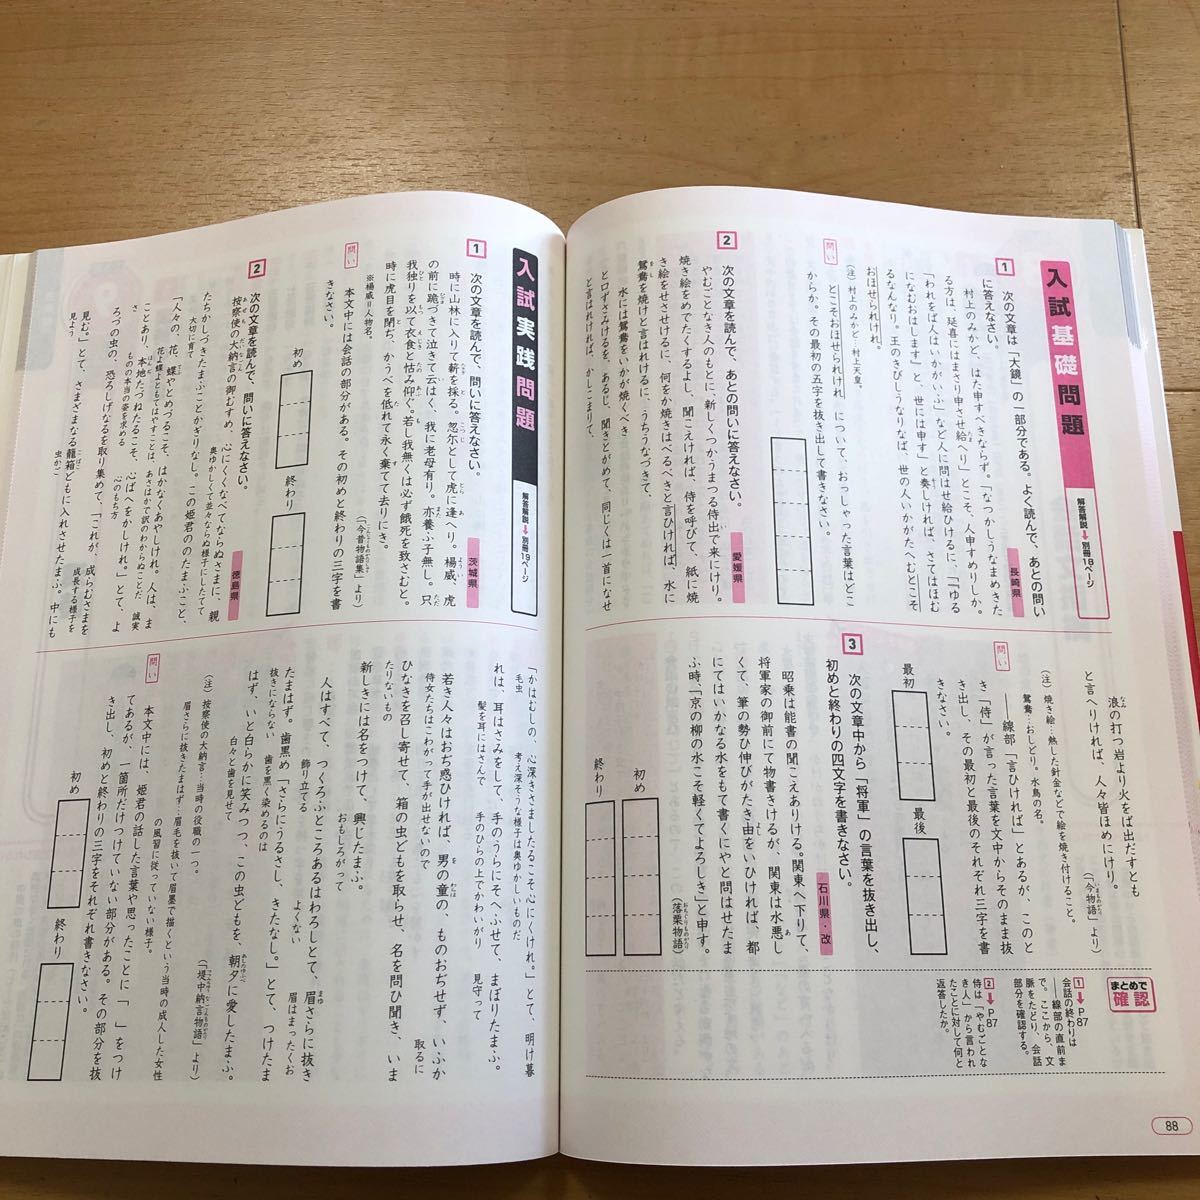 入試基礎問題
解答解説➡別冊18ページ
1
次の文章は「大鏡」の一部分である。よく読んで、あとの問い
に答えなさい。
長崎県
村上のみかど、はた申すべきならず。「なつかしうなまめきた
る方は、延喜にはまさり申させ給へり」とこそ、人申すめりしか。
「われをば人はいかがいふ」など人に問はせ給ひけるに、「『ゆる
になむおはします』と、世には申す」と奏しければ、「さてはほむ
るなんなり。王のきびしうなりなば、世の人いかがたへむとこそ
おほせられけれ。
(注)村上のみかど…村上天皇。
問い
とこそおほせられけれ について、おっしゃった言葉はどこ
からか。その最初の五字を抜き出して書きなさい。
2
次の文章を読んで、あとの問いに答えなさい。
愛媛県
やむごとなき人のもとに、新しくつかうまつる侍出で来にけり。
焼き絵をめでたくするよし、聞こえければ、侍を呼びて、紙に焼
き絵をせさせけるに、何をか焼きはべるべきと言ひければ、水に
鴛鴦を焼けと言はれけるに、うちうなづきて、
水には鴛鴦をいかが焼くべき
と口ずさみけるを、あるじ、聞きとがめて、同じくは一首になせ
と言はれければ、かしこまりて、
浪の打つ岩より火をば出だすとも
と言へりければ、人々皆ほめにけり。
(「今物語」より)
(注)焼き絵…熱した針金などで絵を焼き付けること。
鴛鴦…おしどり。水鳥の名。
問い
――線部「言ひければ」とあるが、このと
き「侍」が言った言葉を文中からそのまま抜
き出し、その最初と最後のそれぞれ三字を書
きなさい。
最初
最後
3
次の文章中から「将軍」の言葉を抜き出し、
初めと終わりの四文字を書きなさい。
石川県・改
昭乗は能書の聞こえありける。関東へ下りて、
将軍家の御前にて物書きけるが、関東は水悪し
くて、筆の勢ひ伸びがたき由をいひければ、都
にてはいかなる水をもて書くにやと問はせたま
ふ時、「京の柳の水こそ軽くてよろしき」と申す。
(落栗物語)
初め
終わり
まとめで
確認
1➡P87
会話の終わりは
――線部の直前ま
で。ここから、文
脈をたどり、会話
部分を確認する。
2➡P87
侍は「やむごとな
き人」から言われ
たことに対して何と
返答したか。
88
入試実践問題
解答解説➡別冊19ページ
1
次の文章を読んで、問いに答えなさい。
茨城県
時に山林に入りて薪を採る。忽尓として虎に逢へり。楊威、虎
の前に跪づきて泣きて云はく、我に老母有り。亦養ふ子無し。只
我独りを以て衣食と怙み仰ぐ。若し我無くは必ず餓死を致さむと。
時に虎目を閉ぢ、かうべを低れて永く棄てて去りにき。
(「今昔物語集」より)
※楊威=人物名。
問い
本文中には会話の部分がある。その初めと終わりの三字を書
きなさい。
初め
終わり
2
次の文章を読んで、問いに答えなさい。
徳島県
按察使の大納言の御むすめ、心にくくなべてならぬさまに、親
奥ゆかしくて並々ならぬ様子にしたてて
たちかしづきたまふことかぎりなし。この姫君ののたまふこと、
大切に育て
「人々の、花、蝶やとめづるこそ、はかなくあやしけれ。人は、ま
花よ蝶よともてはやすことは、あさはかで訳のわからぬことだ 誠実
ことあり、本地たづねたるこそ、心ばへをかしけれ。」とて、よ
ものの本当の姿を求める 心のもち方
ろづの虫の、恐ろしげなるを取り集めて、「これが、成らむさまを
成長する様子を
見む。」とて、さまざまなる籠箱どもに入れさせたまふ。中にも
見よう 虫かご
「かはむしの、心深きさましたるこそ心にくけれ。」とて、明け暮
毛虫 考え深そうな様子は奥ゆかしいものだ
れは、耳はさみをして、手のうらにそへふせて、まぼりたまふ。
髪を耳にはさんで 手のひらの上でかわいがり 見守って
若き人々はおぢ惑ひければ、男の童の、ものおぢせず、いふか
侍女たちはこわがって手が出せないので 取るに
ひなきを召し寄せて、箱の虫どもを取らせ、名を問ひ聞き、いま
たりないもの
新しきには名をつけて、興じたまふ。
おもしろがって
人はすべて、つくろふところあるはわろしとて、眉さらに抜き
飾り立てる よくない 眉はまったくお
たまはず。歯黒め「さらにうるさし、きたなし。」とて、つけたま
抜きにならない 歯を黒く染めるのは
はず、いと白らかに笑みつつ、この虫どもを、朝夕に愛したまふ。
白々と歯を見せて
(「堤中納言物語」より)
(注)按察使の大納言…当時の役職の一つ。
眉さらに抜きたまはず…眉毛を抜いて眉墨で描くという当時の成人した女性
の風習に従っていない様子。
問い
本文中には、姫君の話した言葉や思ったことに「 」をつけ
てあるが、一箇所だけつけていない部分がある。その部分を抜
き出し、初めと終わりの三字をそれぞれ書きなさい。
初め
終わり